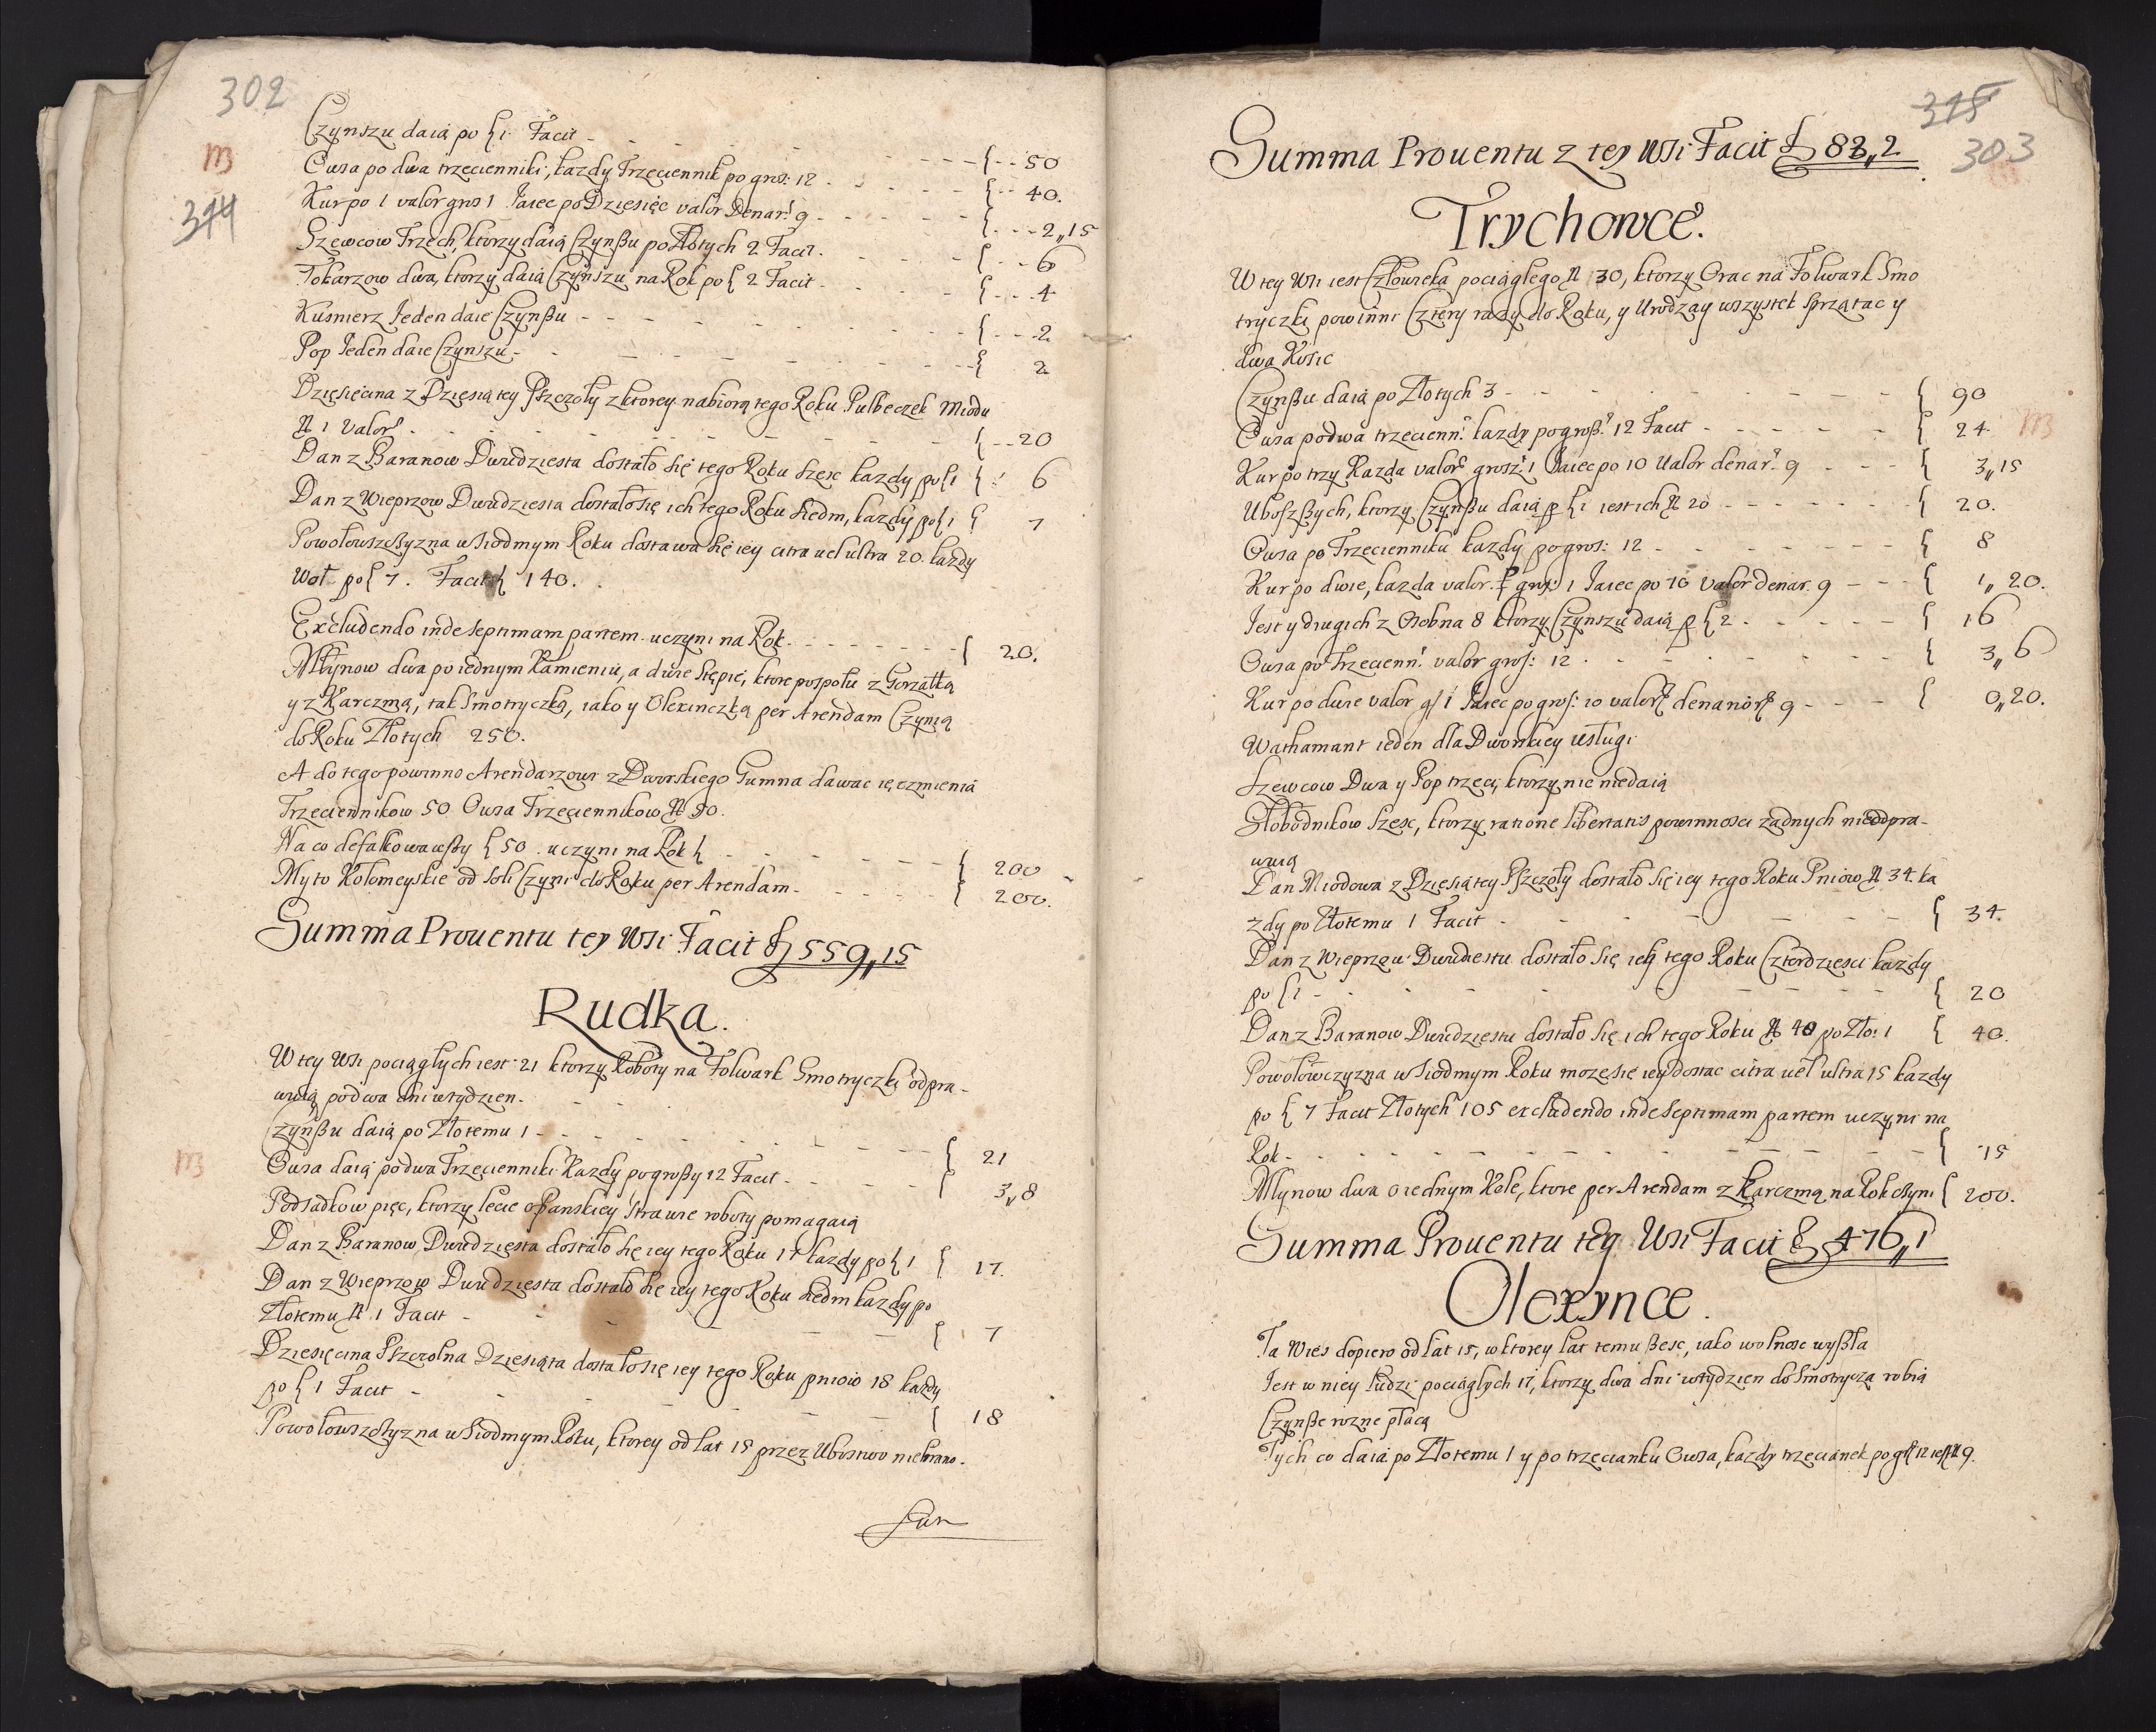 302
314
Czynszu daią po ƺ 1. Facit - - - { - - 50
Owsa po dwa trzecienniki, każdy Trzeciennik po gros: 12 - - - { - - 40.
Kur po 1 valor gros 1 Iaiec po Dziesięc valor Denar: 9 - - - { - - - 2,,15
Szewcow Trzech, ktorzy daią Czynßu po Złotych 2 Facit - - - { - - 6
Tokarzow dwa, ktorzy daią Czynszu na Rok po ƺ 2 Facit - - - { - - - 4
Kusnierz Ieden daie Czynßu - - - { - - - 2
Pop Ieden daie Czynszu - - - { 2
Dzięsięcina z Dziesiątey Pszczoły z ktorey nabiorą tego Roku Pułbeczek Miodu
N 1 Valor - - - { - - 20
Dan z Baranow Dwudziesta dostało się tego Roku szesc kazdy po ƺ 1 { 6
Dan z Wieprzow Dwudziesta dostało się ich tego Roku siedm, kazdy po ƺ 1 { 7
Powołowszczyzna w Siodmym Roku dostawa się iey citra uel ultra 20. kazdy
Woł po ƺ 7. Facit ƺ 140.
Excludendo inde septimam partem uczyni na Rok - - - { 20.
Młynow dwa po iednym Kamieniu, a dwie stępie, ktore pospołu z Gorzałką
y z Karczmą, tak Smotryczką, iako y Olexinczką per Arendam Czynią
do Roku Złotych 250.
A do tego powinno Arendarzowi z Dworskiego Gumna dawac ięczmienia
Trzeciennikow 50 Owsa Trzeciennikow N 50.
Na co defalkowawßy ƺ 50. uczyni na Rok ƺ - - - { 200
Myto Kołomeyskie od soli Czyni do Roku per Arendam - - - { 200.
Summa Prouentu tey Wsi Facit ƺ 559,,15
Rudka.
W tey Wsi pociągłych iest 21 ktorzy Roboty na Folwark Smotryczki odpra-
wuią po dwa dni w tydzien.
Czynßu daią po Złotemu 1 - - - { 21
Owsa daią po dwa Trzecienniki Kazdy po großy 12 Facit - - - { 3,,8
Podsadkow pięc, ktorzy lecie o Panskiey strawie roboty pomagaią
Dan z Baranow Dwudziesta dostało się iey tego Roku 17 kazdy po ƺ 1 { 17.
Dan z Wieprzow Dwudziesta dostało się iey tego Roku siedm kazdy po
Złotemu N 1 Facit - - - { 7
Dziesięcina Pszczolna Dziesiąta dostało się iey tego Roku pniow 18 kazdy
po ƺ 1 Facit - - - { 18
Powołowszczyzna w Siodmym Roku, ktorey od lat 15 przez Ubostwo niebrano.
Sum
315
303
Summa Prouentu z tey Wsi Facit ƺ 83,,2
Trychowce.
W tey Wsi iest Człowieka pociągłego N 30, ktorzy Orac na Folwark Smo
tryczki powinni Cztery razy do Roku, y Urodzay wszystek sprzątac y
dwa Kosic
Czynßu daią po Złotych 3 - - - { 90
Owsa po dwa trzecienn: kazdy po groß: 12 Facit - - - { 24
Kur po trzy Kazda valor grosz: 1 Iaiec po 10 Ualor denar: 9 - - - { 3,,15
Uboszßych, ktorzy Czynßu daią p ƺ 1 iest ich N 20 - - - { 20.
Owsa po Trzecienniku kazdy po gros: 12 - - - { 8
Kur po dwie, kazda valor gros: 1 Iaiec po 10 valor denar. 9 - - - { 1,,20.
Iest y drugich z Osobna 8 ktorzy Czynszu daią p ƺ 2 - - - { 16
Owsa po Trzecienn: valor gros: 12 - - - { 3,,6
Kur po dwie valor gſ 1 Iaiec po gros: 10 valor denarior 9 - - - { 0,,20.
Wathamant ieden dla Dworskiey usługi
Szewcow Dwa y Pop trzeci, ktorzy nic niedaią
Słobodnikow szesc, ktorzy ratione libertatis powinnosci zadnych nieodpra-
wuią
Dan Miodowa z Dziesiątey Pszczoły dostało się iey tego Roku Pniow N 34. ka
zdy po Złotemu 1 Facit - - - { 34.
Dan z Wieprzow Dwudziestu dostało się ich tego Roku Czterdziesci kazdy
po ƺ 1 - - - { 20
Dan z Baranow Dwudziestu dostało się ich tego Roku N 40 po Zło: 1 { 40.
Powołowczyzna w Siodmym Roku moze się iey dostac citra uel ultra 15 kazdy
po ƺ 7 Facit Złotych 105 excludendo inde septimam partem uczyni na
Rok - - - { 15
Młynow dwa o iednym Kole, ktore per Arendam z Karczmą na Rok czyni { 200.
Summa Prouentu tey Wsi Facit ƺ 476,,1
Olexince.
Ta Wies dopiero od lat 15, w ktorey lat temu ßesc, iako wolnosc wyßła
Iest w niey ludzi pociągłych 17, ktorzy dwa dni w tydzien do Smotrycza robią
Czynße rozne płacą
Tych co daią po Złotemu 1 y po trzecianku Owsa, kazdy trzecianek po gſ 12 iest N 9.